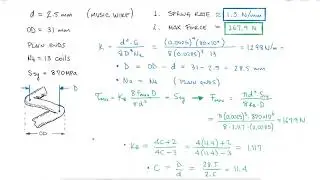 d = 2.5 mm (MUSIC WIRE)
OD = 31 mm
PLAIN ENDS
Nt = 13 COILS
Ssy = 870 MPa
OD
1. SPRING RATE = 1.3 N/mm
2. MAX FORCE = 167.9 N
k = d⁴·G / 8D³Na = (0.0025)⁴(80×10⁹) / 8(0.0285)³ 13 = 1298 N/m
• D = OD - d = 31 - 2.5 = 28.5 mm
• Na = Nt (PLAIN ENDS)
τmax = KB 8FmaxD / πd³ = Ssy → Fmax = πd³·Ssy / 8KB·D
= π(0.0025)³·870×10⁶ / 8·1.117·(0.0285) = 167.9 N
• KB = 4C+2 / 4C-3 = 4(11.4)+2 / 4(11.4)-3 = 1.117
• C = D / d = 28.5 / 2.5 = 11.4